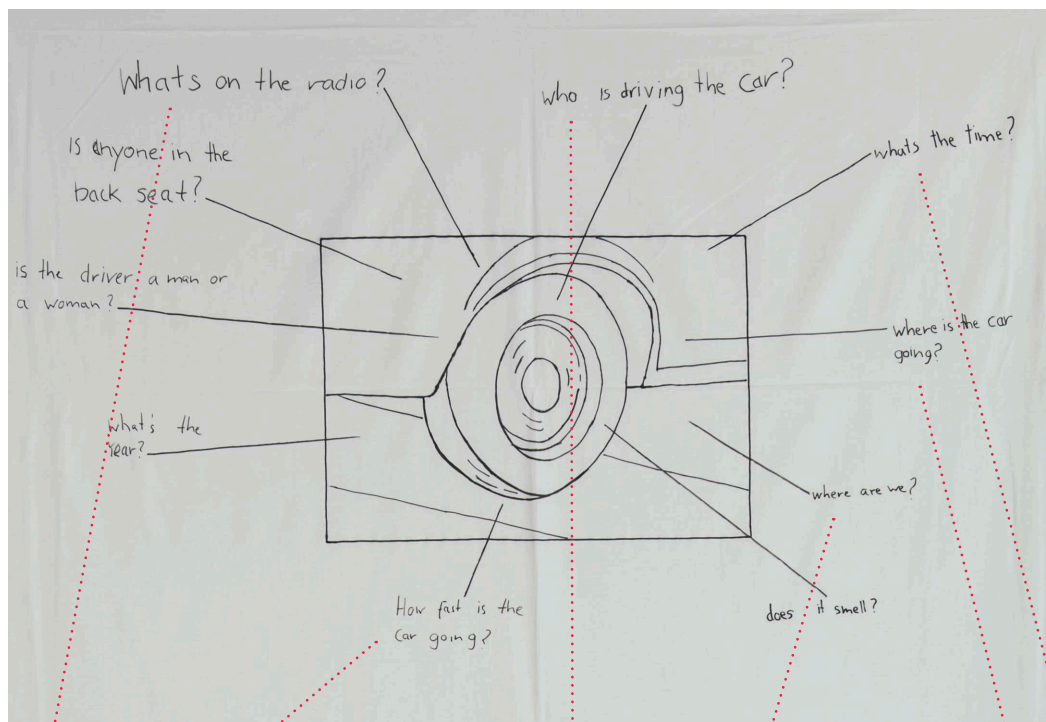 Whats on the radio?
who is driving the car?
Is anyone in the
back seat?
whats the time?
is the driver a man or
a woman?
where is the car
going?
what's the
Year?
where are we?
How fast is the
car going?
does it smell?